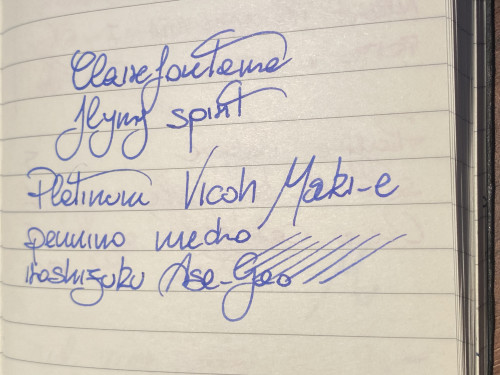 Clairefontaine
flying spirit
Platinum Vicoh Maki-e
pennino medio
iroshizuku Asa-Gao